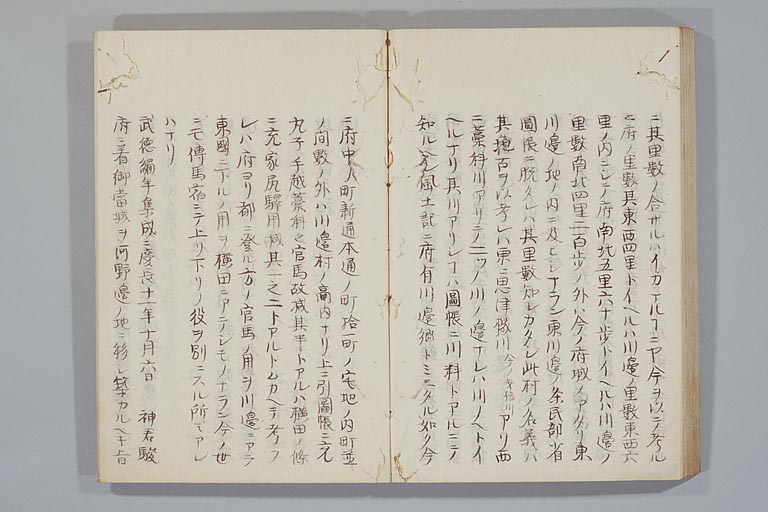 ニ其里數ノ合サルハイカナルヿニヤ今ヲ以テ考ルニ
府ノ里數其東西四里トイヘルハ川邊ノ里數東西六
里ノ内ニシテ府南北五里六十歩トイヘルハ川邊ノ
里數南北四里二百歩ノ外ハ今ノ府城ノアタリ東
川邊ノ地ノ内ニ及ヒシナラン東川邊ノ条民部省
圖帳ニ脱タレハ其里數知レカタシ此村ノ名義ハ
其穂百ヲ以考レハ東ニ思津機川アリ西
ニ藁科川アリテ二ツノ川ノ邊ナレハ川ノヘトイ
ヘルナリ其川アリシヿハ圖帳ニ川料トアルニテ
知ルヘシ風土記ニ府有川邊郷トミエタル如ク今
ニ府中人町新通本通ノ町拾町ノ宅地ノ内町並
ノ間數ノ外ハ川邊村ノ高内ナリ上ニ引圖帳ニ充
丸子手越藁科之官馬故減其半トアルハ横田ノ條
ニ充家尻驛用減其一之二トアルトムカヘテ考フ
レハ府ヨリ都ニ登ル方ノ官馬ノ用ヲ川邊ニアテ
東國ニ下ルノ用ヲ横田ニアテシモノナラン今ノ世
ニモ傳馬宿ニテ上リ下リノ役ヲ別ニスル所モアレ
ハナリ
武德編年集成ニ慶長十一年十月六日 神君駿
府ニ着御當城ヲ河野邊ノ地ニ移シ築カルヘキ旨